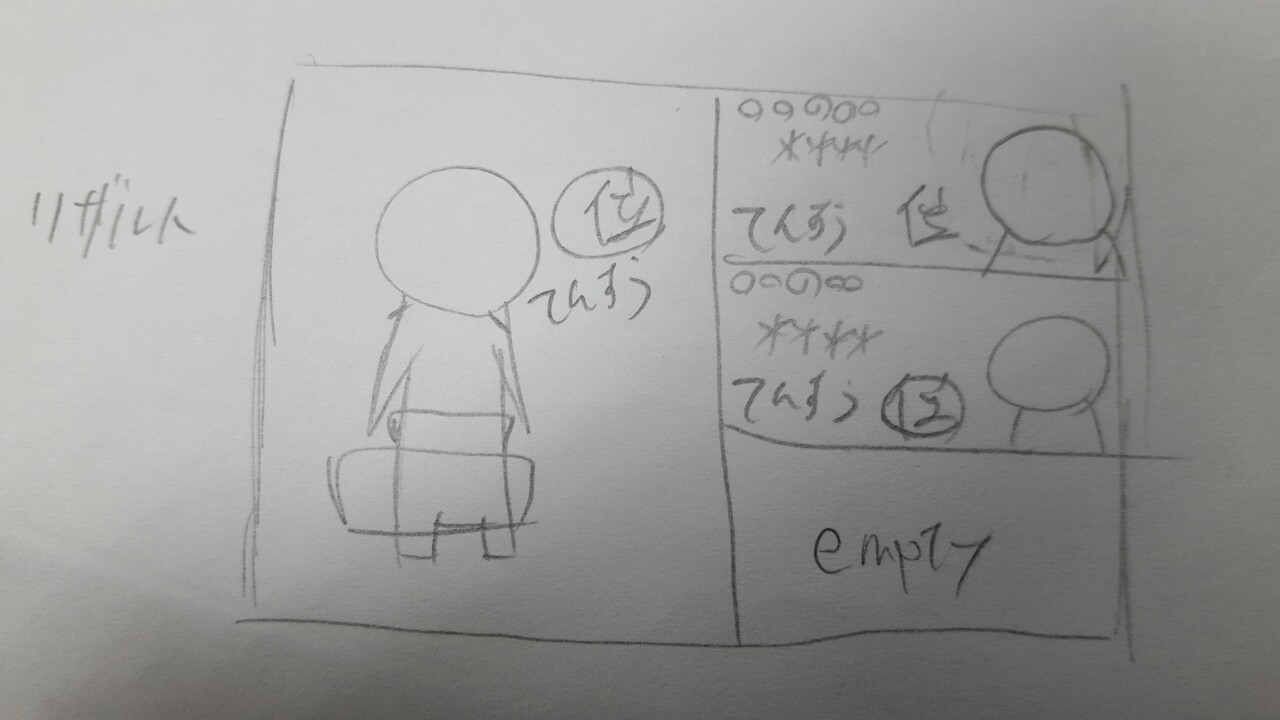 リザルト
位
てんすう
○○の○○
****
てんすう 位
○○の○○
****
てんすう 位
empty